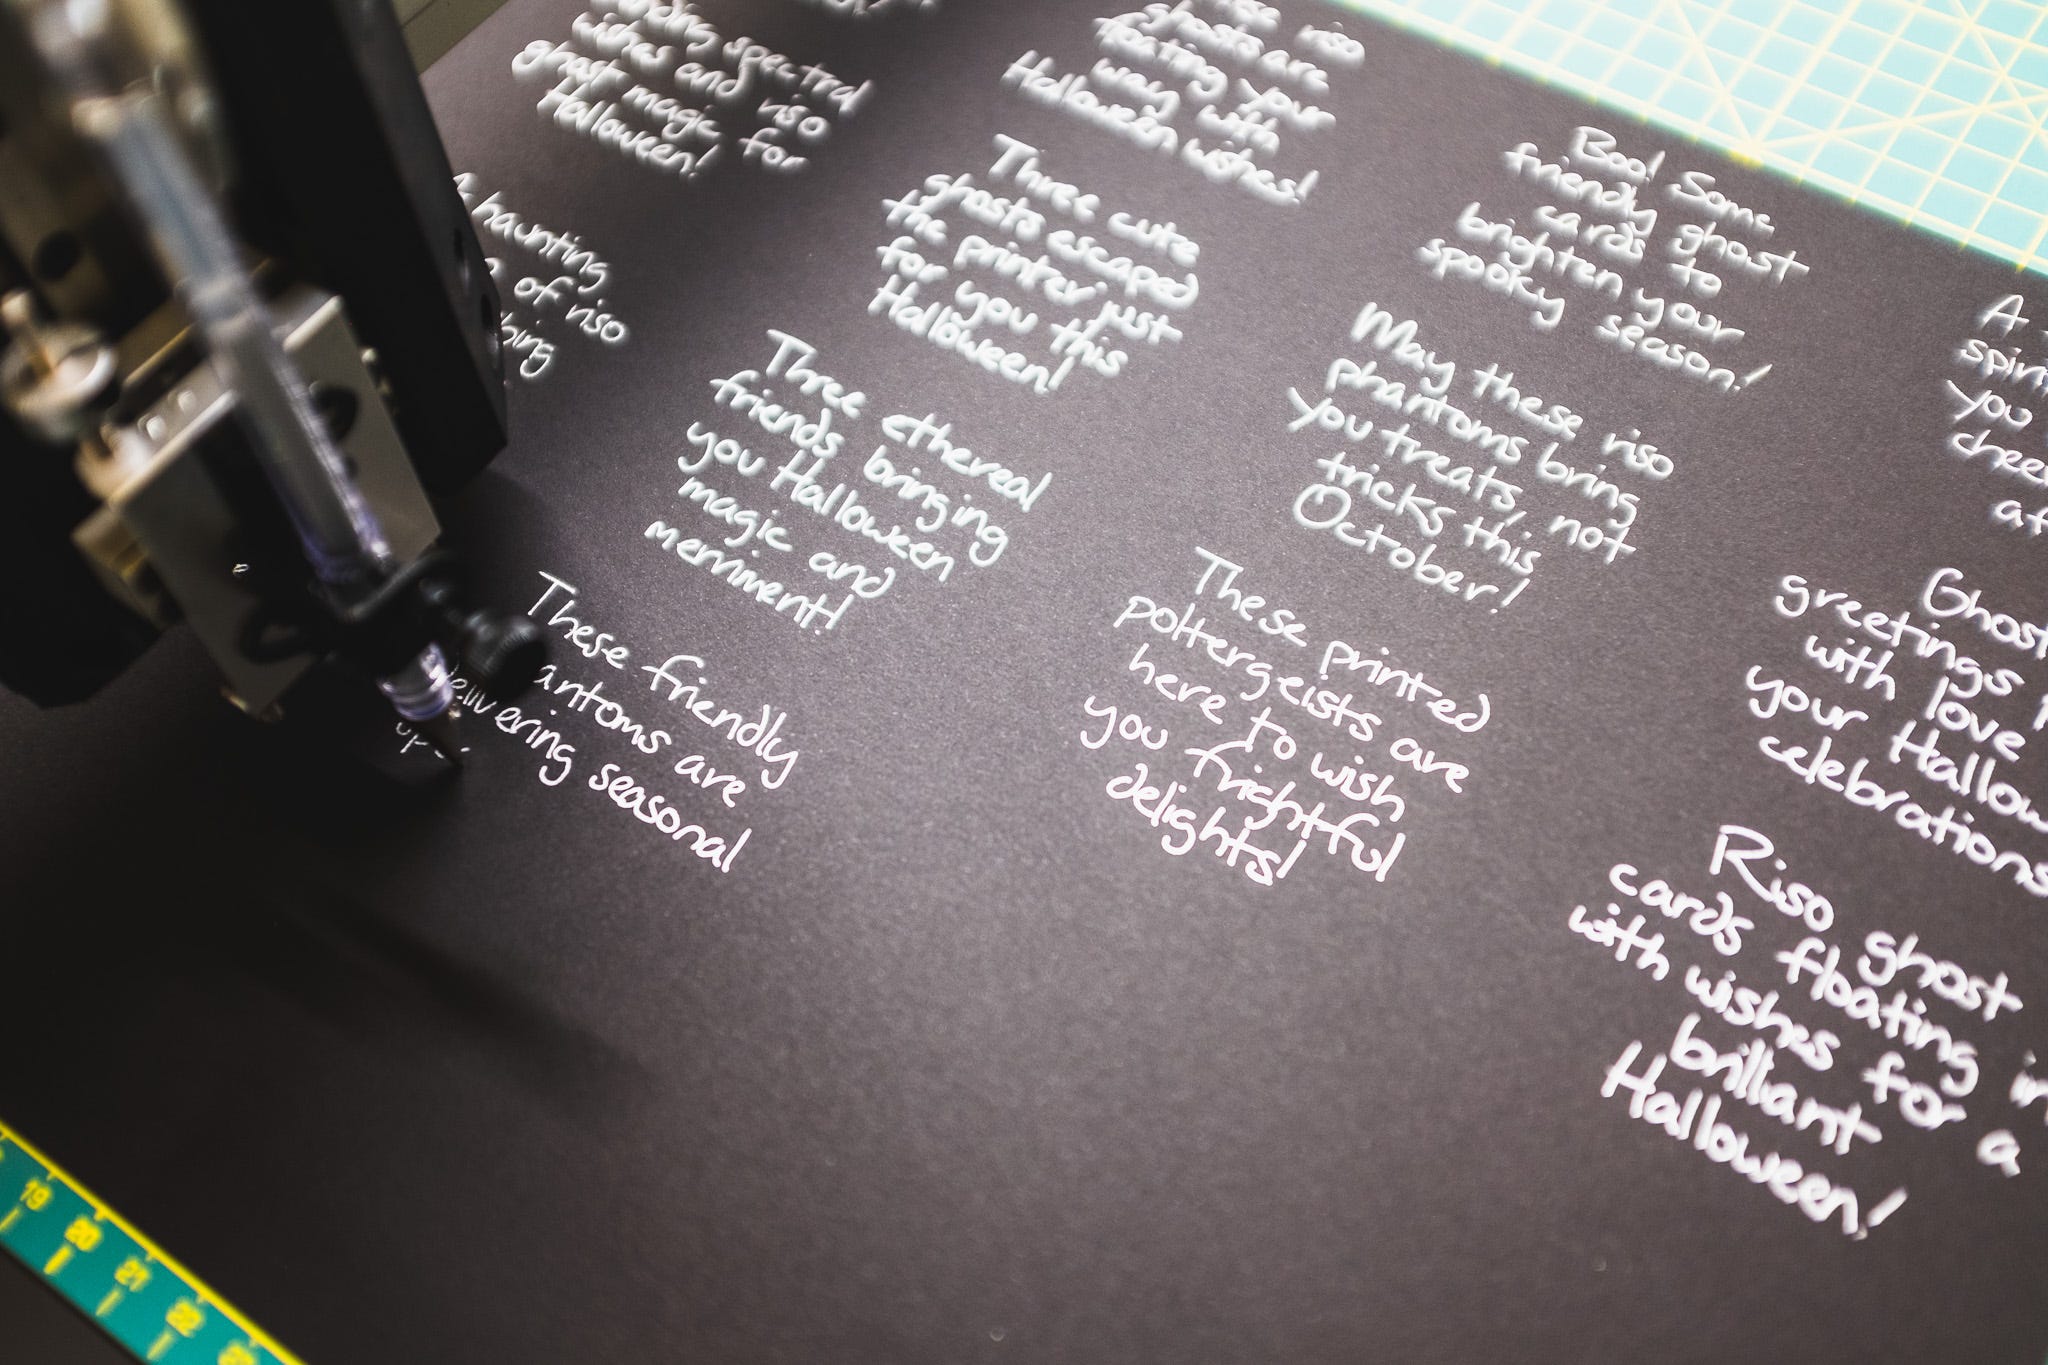 spectral
wishes and riso
ghost magic for
Halloween!
riso
ghosts are
floating your
way with
Halloween wishes!
Boo! Some
friendly ghost
cards to
brighten your
spooky season!
haunting
of riso
Three cute
ghosts escaped
the printer just
for you this
Halloween!
Three ethereal
friends bringing
you Halloween
magic and
merriment!
May these riso
phantoms bring
you treats, not
tricks this
October!
A
you
These friendly
are
delivering seasonal
These printed
poltergeists are
here to wish
you frightful
delights!
greetings
with love
your
celebrations
Riso ghost
cards floating in
with wishes for a
brilliant
Halloween!
19
20
21
22